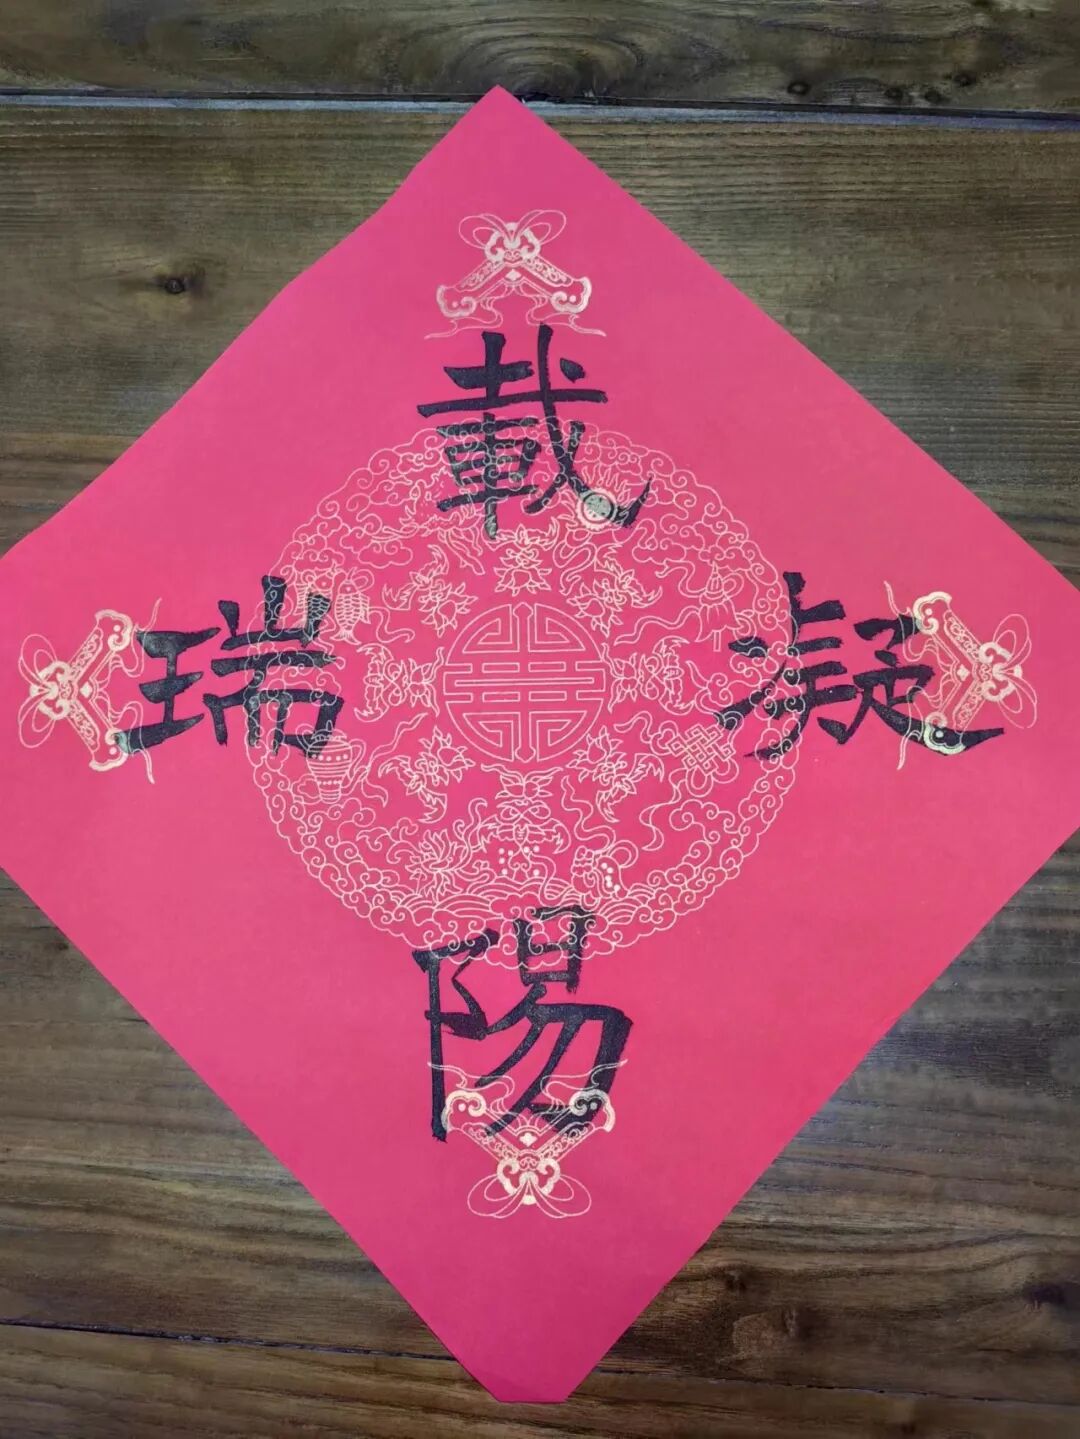 載
陽
凝
瑞